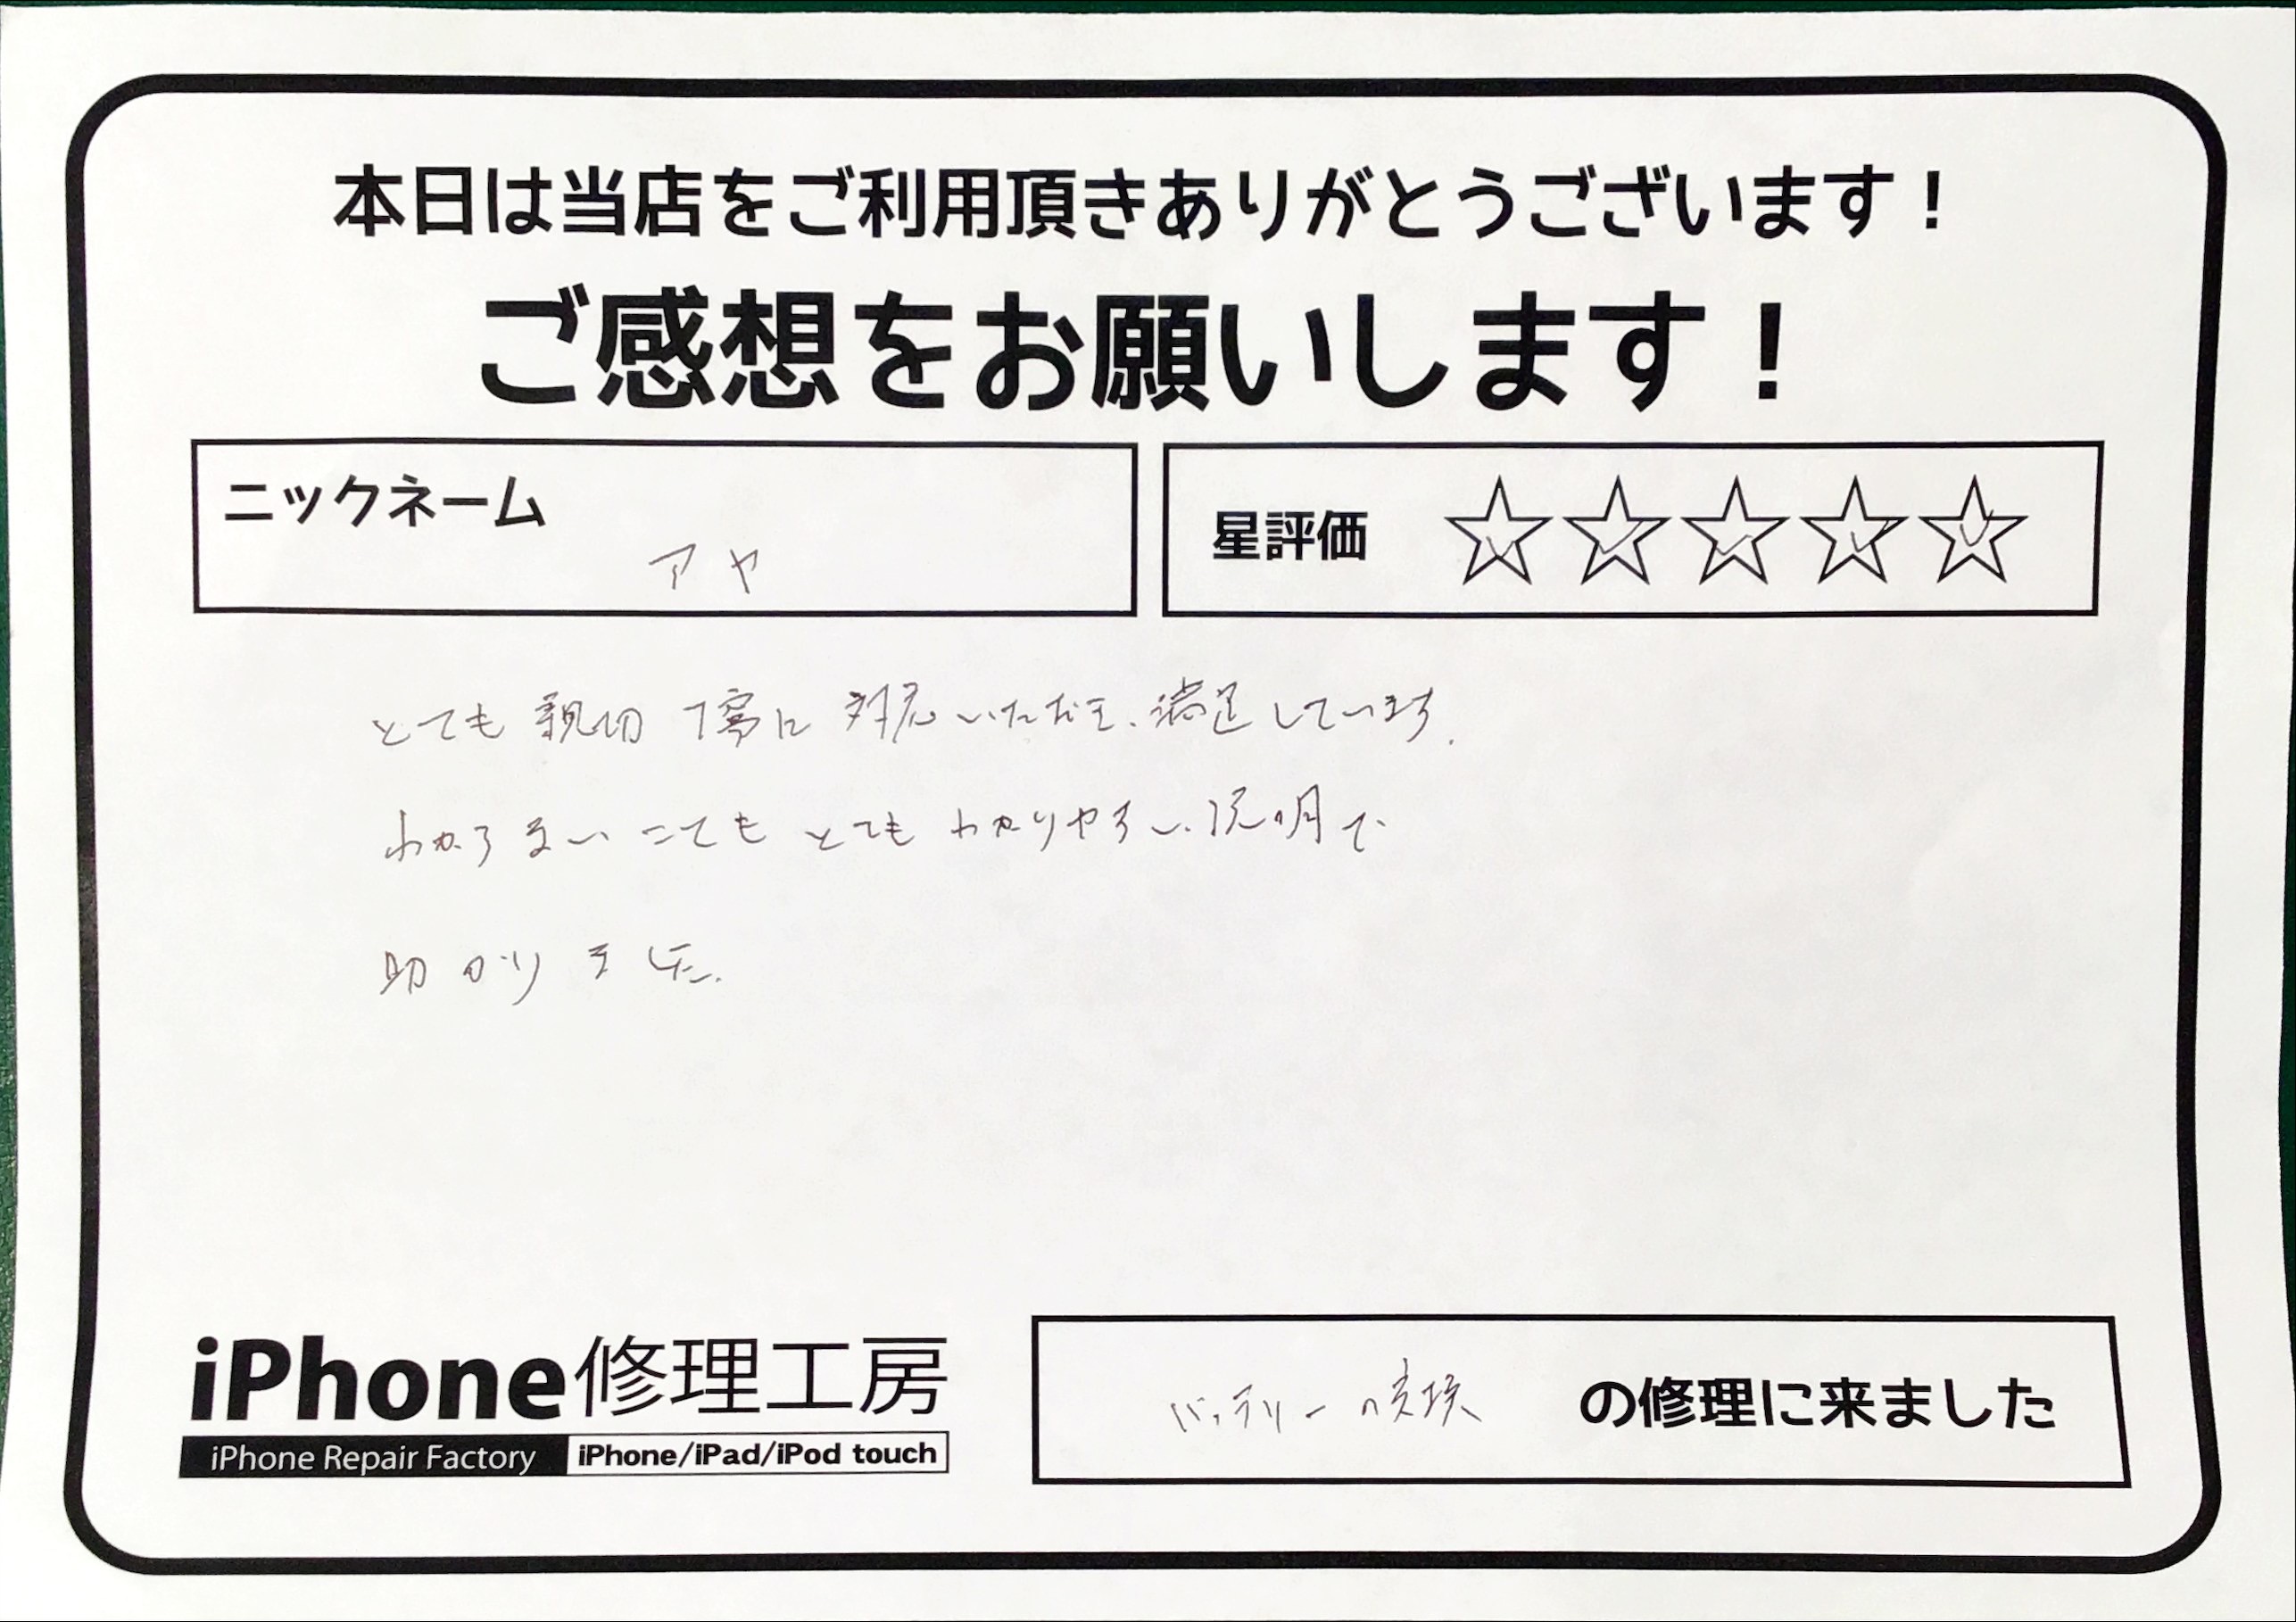 本日は当店をご利用頂きありがとうございます！
ご感想をお願いします！
ニックネーム
アヤ
星評価 ☆☆☆☆☆
とても親切丁寧に対応いただき、満足しています。
わからないこともとてもわかりやすい説明で
助かりました。
iPhone修理工房
iPhone Repair Factory iPhone/iPad/iPod touch
バッテリーの交換 の修理に来ました